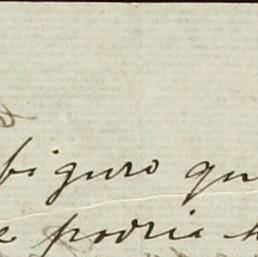 figuro qu
e podria